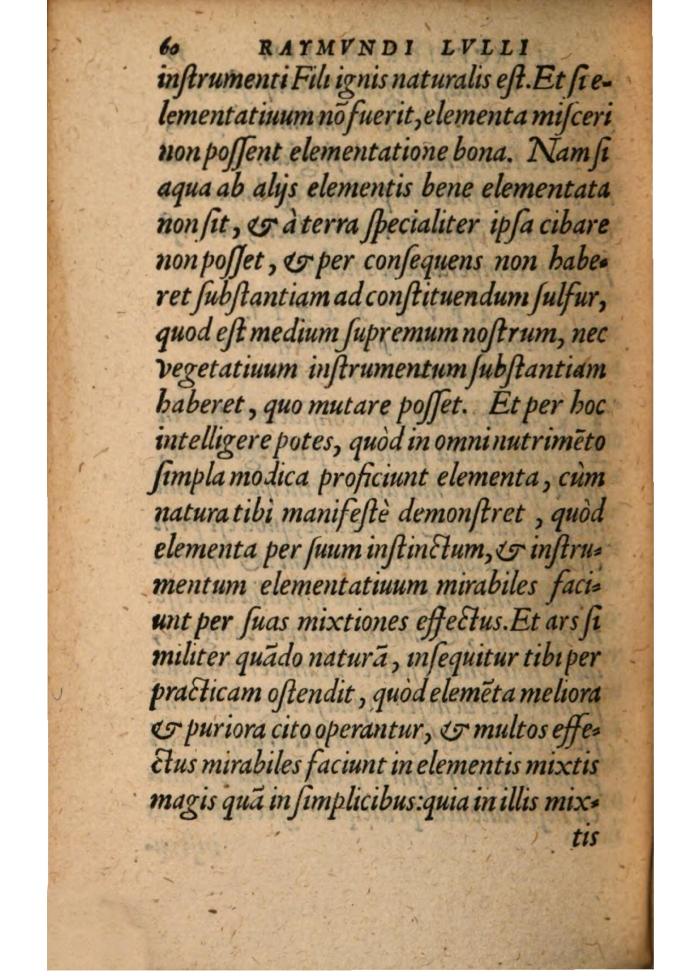 60 RAYMVNDI LVLLI
inſtrumenti Fili ignis naturalis eſt. Et ſi e-
lementatiuum nõ fuerit, elementa miſceri
non poſſent elementatione bona. Nam ſi
aqua ab alijs elementis bene elementata
non ſit, & à terra ſpecialiter ipſa cibare
non poſſet, & per conſequens non habe-
ret ſubſtantiam ad conſtituendum ſulfur,
quod eſt medium ſupremum noſtrum, nec
vegetatiuum inſtrumentum ſubſtantiam
haberet, quo mutare poſſet. Et per hoc
intelligere potes, quòd in omni nutrimẽto
ſimpla modica proficiunt elementa, cùm
natura tibi manifeſtè demonſtret, quòd
elementa per ſuum inſtinctum, & inſtru-
mentum elementatiuum mirabiles faci-
unt per ſuas mixtiones effectus. Et ars ſi
militer quãdo naturã, inſequitur tibi per
practicam oſtendit, quòd elemẽta meliora
& puriora cito operantur, & multos effe-
ctus mirabiles faciunt in elementis mixtis
magis quã in ſimplicibus: quia in illis mix-
tis